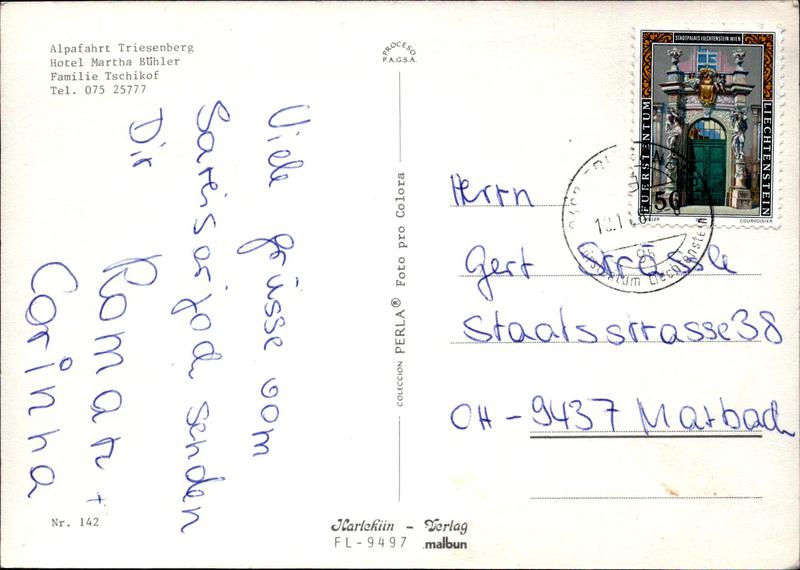 Alpafahrt Triesenberg
Hotel Martha Bühler
Familie Tschikof
Tel. 075 25777
Viele
grüsse vom
Sareiserjoch senden
Dir
Roman +
Corinna
Nr. 142
PROCESO
P.A.G.S.A.
COLECCION PERLA® Foto pro Colora
Harlekiin - Verlag
FL-9497 malbun
STADTPALAIS LIECHTENSTEIN WIEN
FUERSTENTUM
LIECHTENSTEIN
50
COURVOISIER
Fürstentum Liechtenstein
Herrn
Gert Strässle
Staatsstrasse 38
CH-9437 Marbach